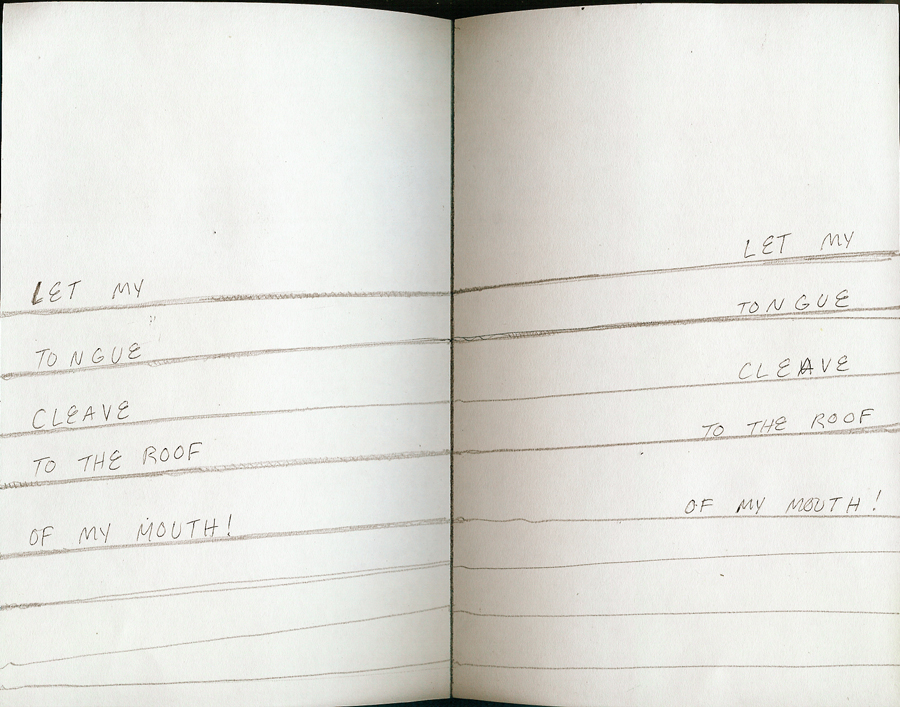 LET MY
TONGUE
CLEAVE
TO THE ROOF
OF MY MOUTH!
LET MY
TONGUE
CLEAVE
TO THE ROOF
OF MY MOUTH!